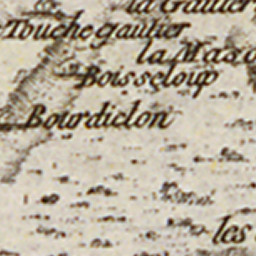 la Gautier
Touchegautier
la Maso
Boisseloup
Bourdielon
les